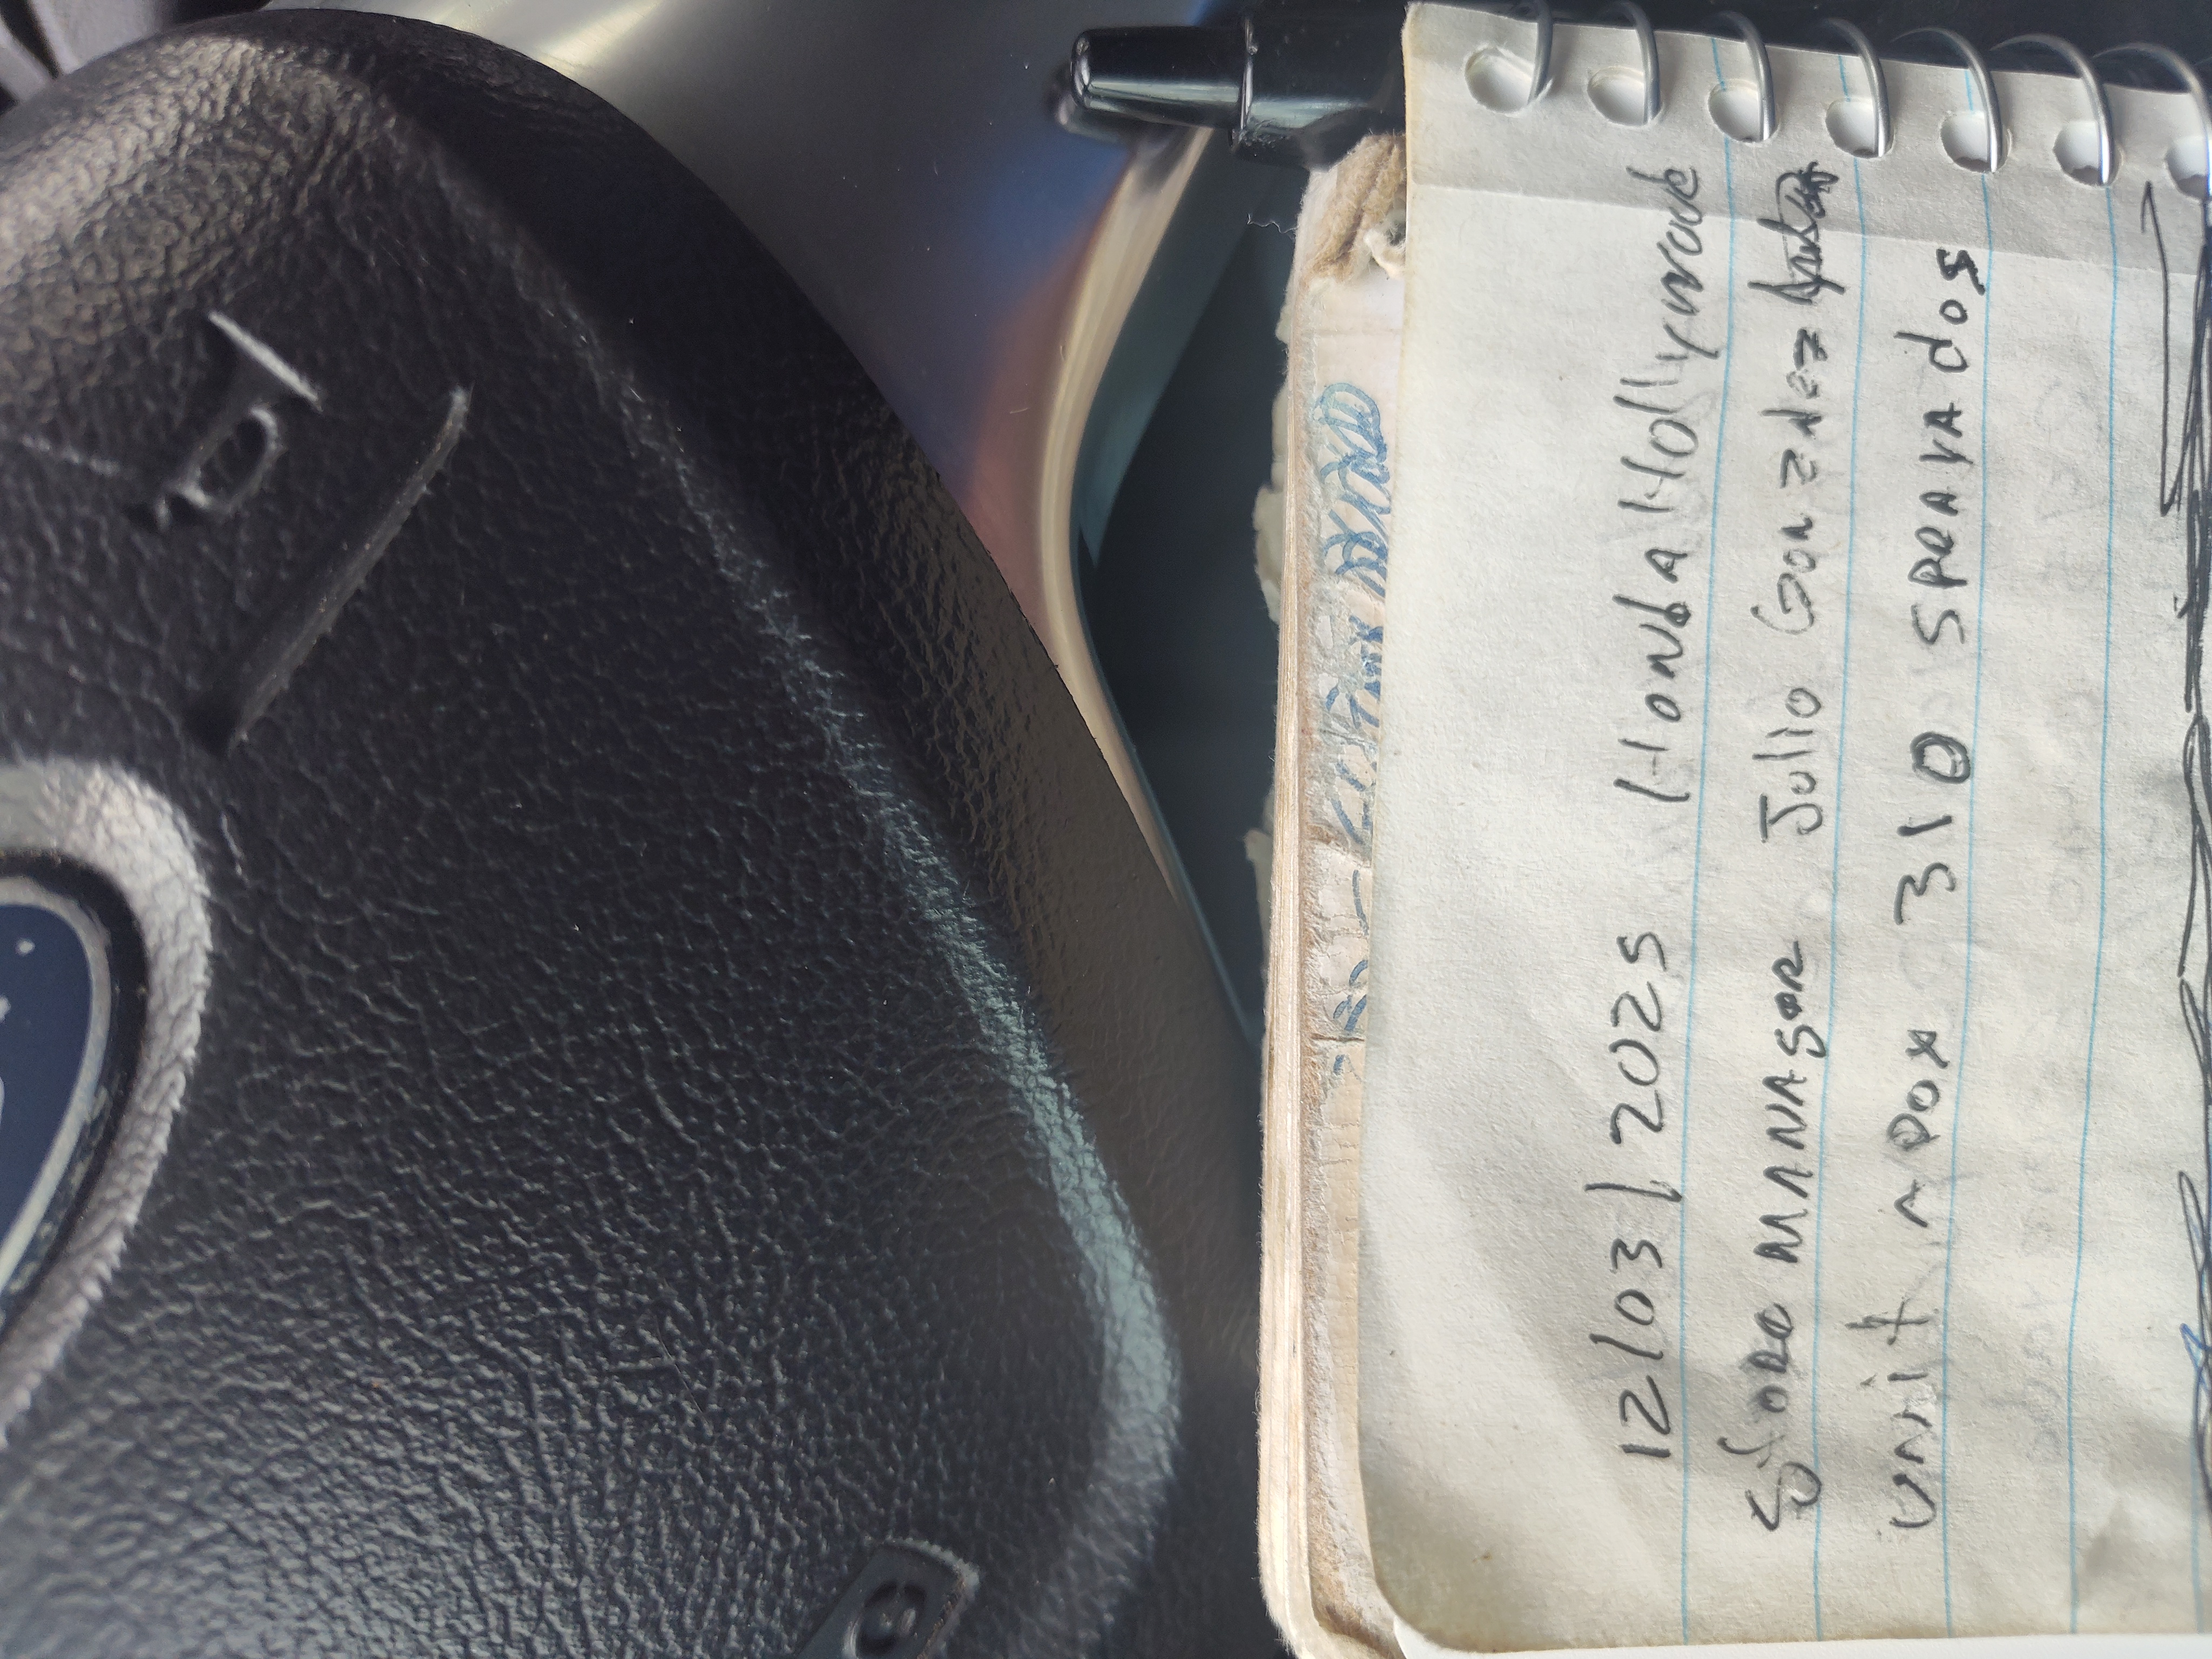 12/03/2025 Honda Hollywood
Store MANAger Julio Gonzalez
unit Apox 310 SPeRVADOS